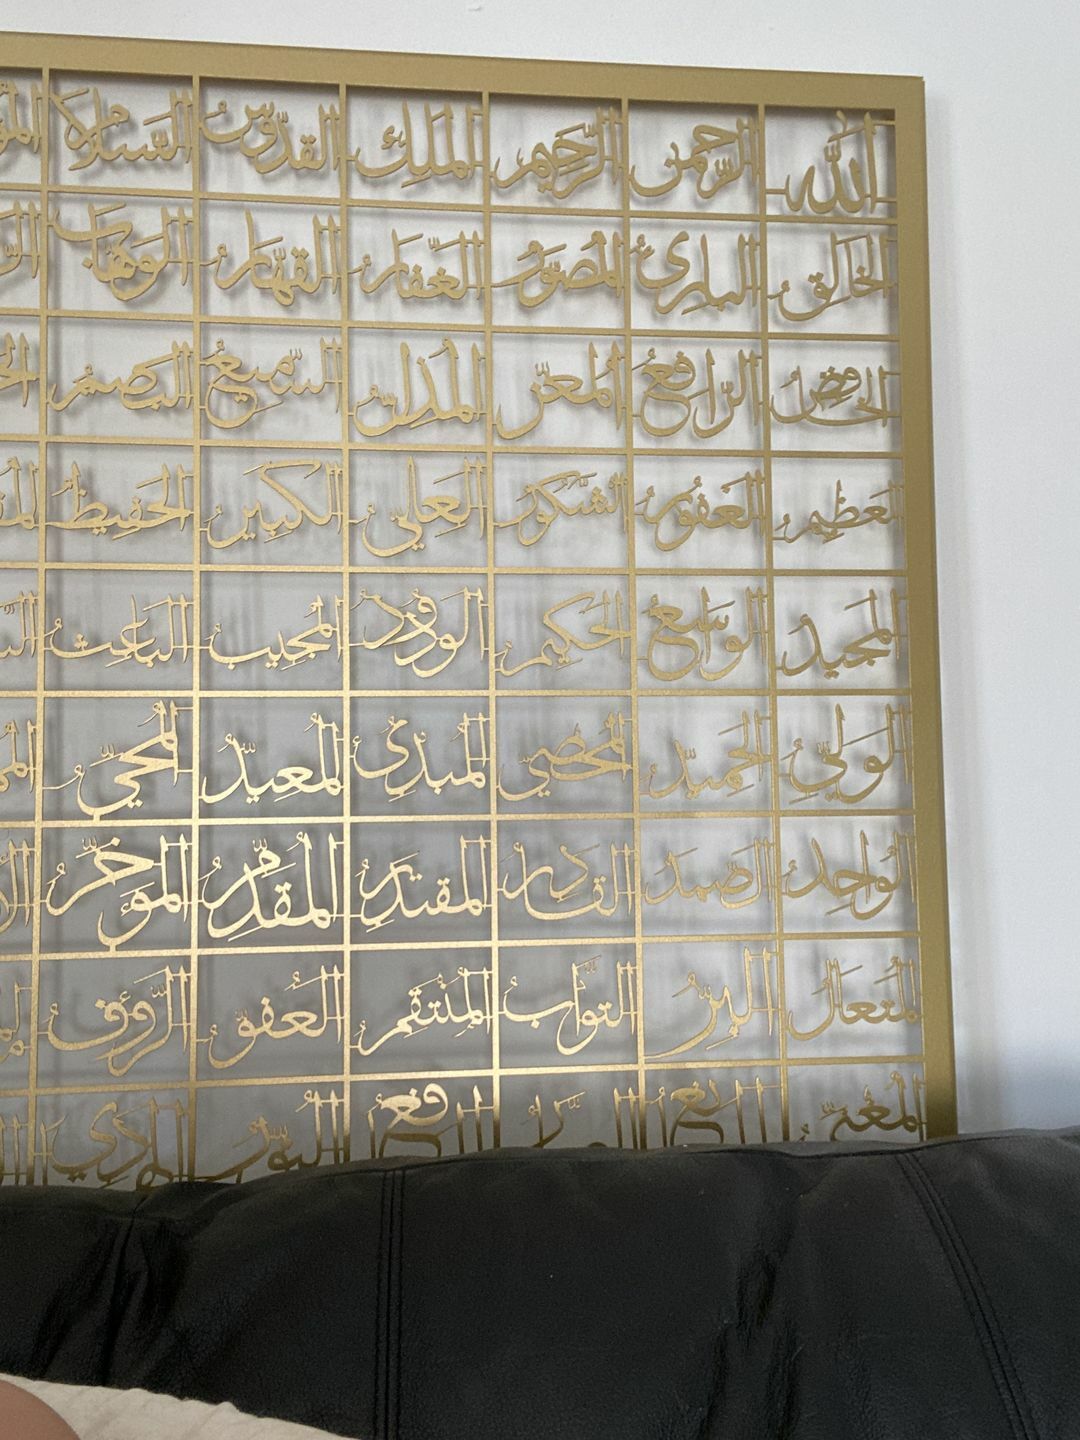 الله الرحمن الرحيم الملك القدوس السلام
الخالق البارئ المصور الغفار القهار الوهاب
الخافض الرافع المعز المذل السميع البصير
العظيم الغفور الشكور العلي الكبير الحفيظ
المجيد الواسع الحكيم الودود المجيب الباعث
الولي الحميد المحصي المبدئ المعيد المحيي
الواحد الصمد القادر المقتدر المقدم المؤخر
المتعال البر التواب المنتقم العفو الرؤوف
المغني النور الهادي